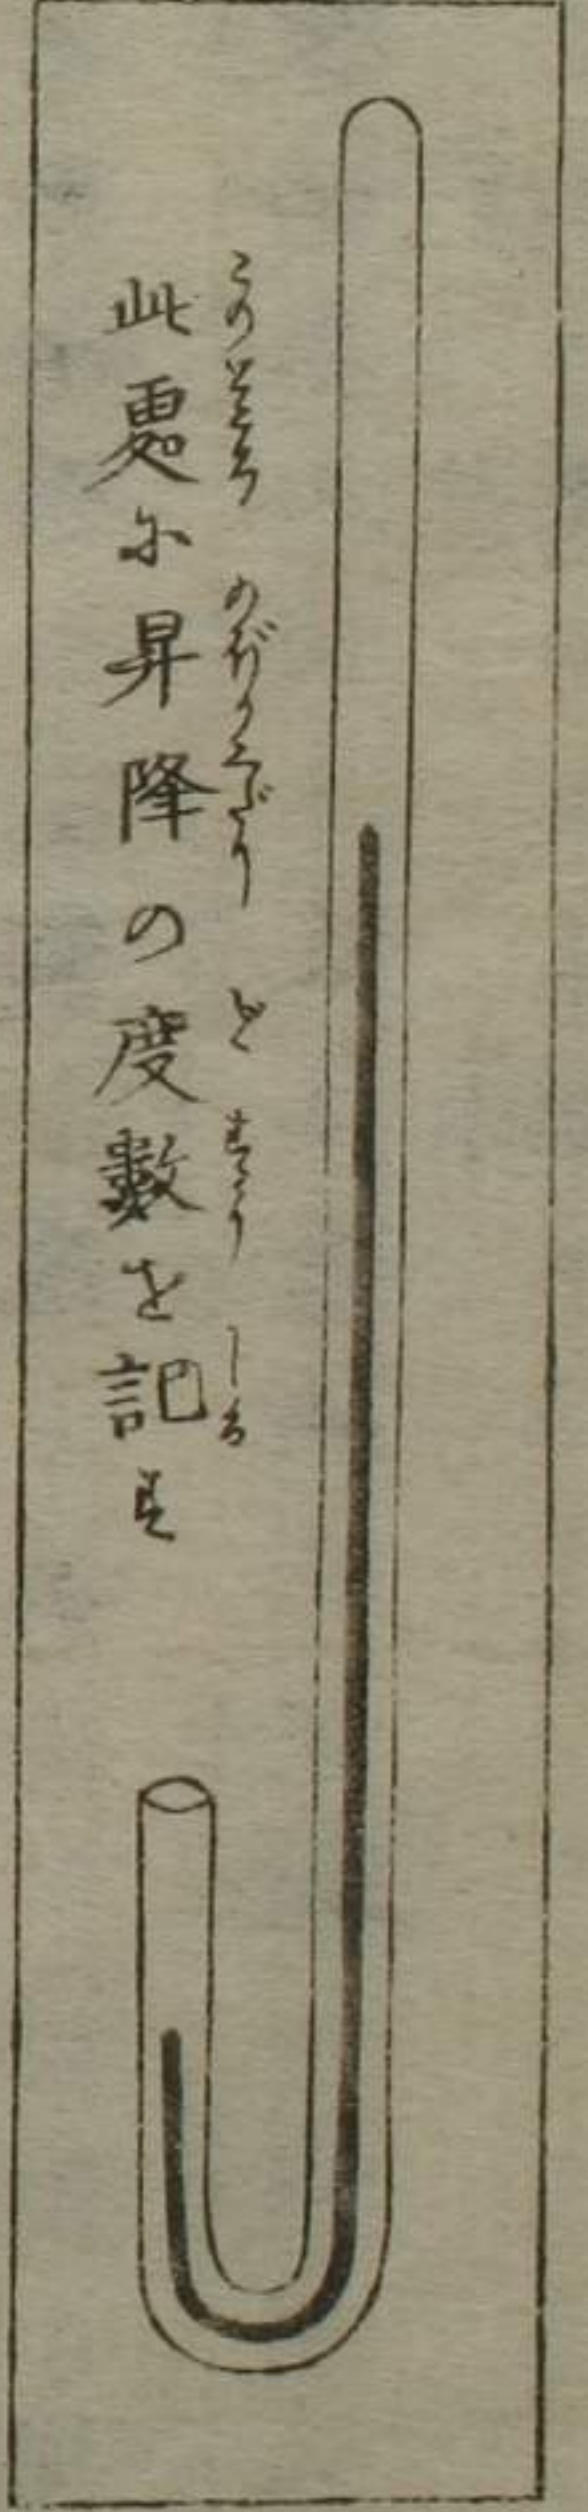 此処に昇降の度数を記す
このところ のぼりくだり どすう しる